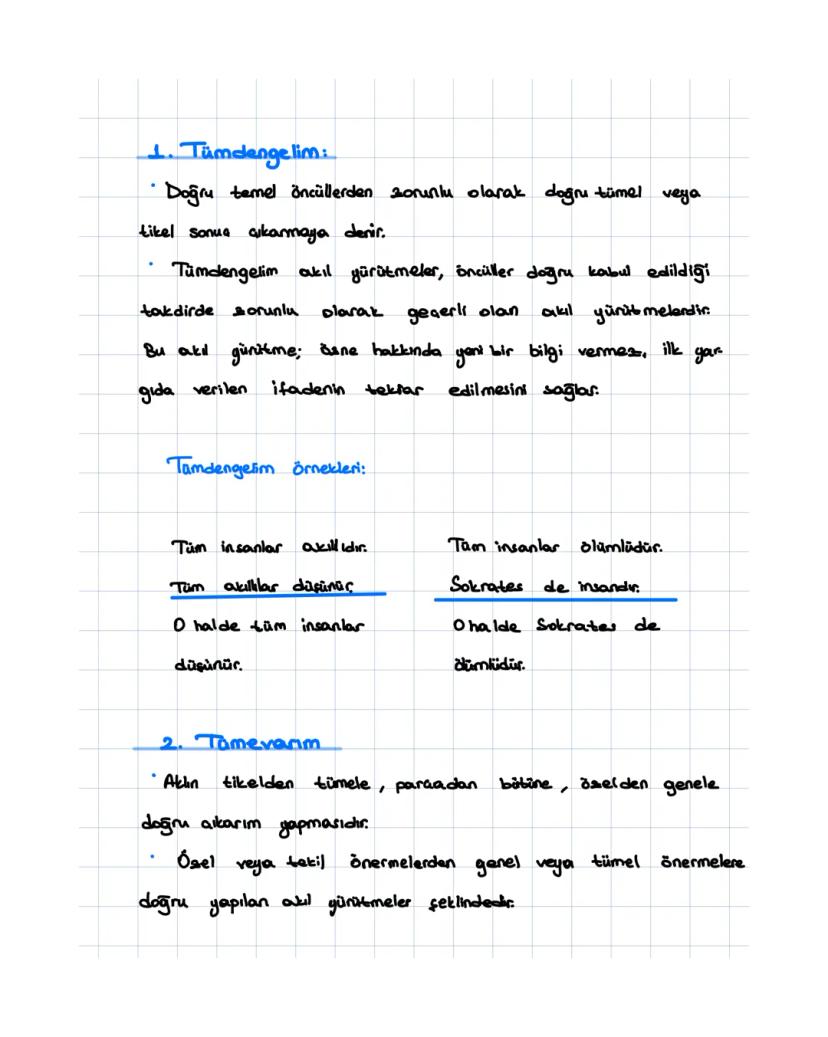 1. Tümdengelim:
· Doğru temel öncüllerden zorunlu olarak doğru tümel veya
tikel sonuç çıkarmaya denir.
· Tümdengelim akıl yürütmeler, öncüller doğru kabul edildiği
takdirde zorunlu olarak geçerli olan akıl yürütmelerdir.
Bu akıl yürütme; özne hakkında yeni bir bilgi vermez, ilk yar-
gıda verilen ifadenin tekrar edilmesini sağlar.
Tümdengelim örnekleri:
Tüm insanlar akıllıdır.
Tüm akıllılar düşünür.
O halde tüm insanlar
düşünür.
Tüm insanlar ölümlüdür.
Sokrates de insandır.
O halde Sokrates de
ölümlüdür.
2. Tümevarım
· Aklın tikelden tümele, parçadan bütüne, özelden genele
doğru çıkarım yapmasıdır.
· Özel veya tekil önermelerden genel veya tümel önermelere
doğru yapılan akıl yürütmeler şeklindedir.